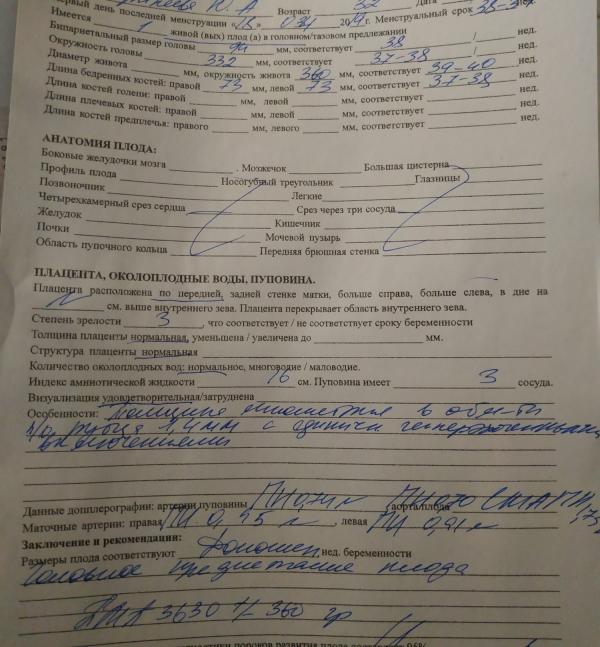 первый день последней менструации « 201 г. Менструальный срок
Имеется 1 живой (вых) плод (а) в головном/тазовом предлежании
Бипариетальный размер головы 94 мм, соответствует 38 / нед.
Окружность головы 332 мм, соответствует 37-38 / нед.
Диаметр живота мм, окружность живота 360 мм, соответствует 39-40 нед.
Длина бедренных костей: правой 73 мм, левой 73 мм, соответствует 37-38 нед.
Длина костей голени: правой мм, левой мм, соответствует нед.
Длина плечевых костей: правой мм, левой мм, соответствует нед.
Длина костей предплечья: правого мм, левого мм, соответствует нед.
АНАТОМИЯ ПЛОДА:
Боковые желудочки мозга . Мозжечок Большая цистерна
Профиль плода Носогубный треугольник Глазницы
Позвоночник Легкие
Четырехкамерный срез сердца Срез через три сосуда
Желудок Кишечник
Почки Мочевой пузырь
Область пупочного кольца Передняя брюшная стенка
ПЛАЦЕНТА, ОКОЛОПЛОДНЫЕ ВОДЫ, ПУПОВИНА.
Плацента расположена по передней, задней стенке матки, больше справа, больше слева, в дне на
см. выше внутреннего зева. Плацента перекрывает область внутреннего зева.
Степень зрелости 3 , что соответствует / не соответствует сроку беременности
Толщина плаценты нормальная, уменьшена / увеличена до мм.
Структура плаценты нормальная
Количество околоплодных вод: нормальное, многоводие / маловодие.
Индекс амниотической жидкости 16 см. Пуповина имеет 3 сосуда.
Визуализация удовлетворительная/затруднена
Особенности: Толщина миометрия в области
п/о рубца 1,4 мм с единичн гиперэхогенными
включениями
Данные допплерографии: артерии пуповины ПИ 0,71 N (аорта/плода ПИ
Маточные артерии: правая ПИ 0, N , левая ПИ 0,91 N
Заключение и рекомендации:
Размеры плода соответствуют Доношен. нед. беременности
Головное предлежание плода
3630 +/- 360 гр